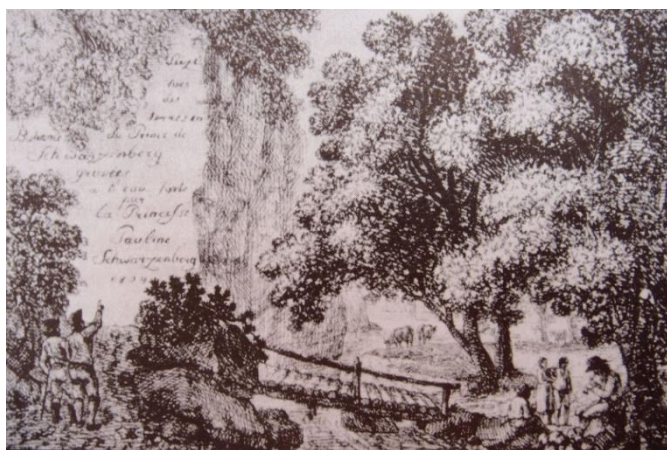 vues
des
Terres en
du Prince de
Schwarzenberg
gravées
a l'eau forte
par
la Princesse
Pauline
Schwarzenberg